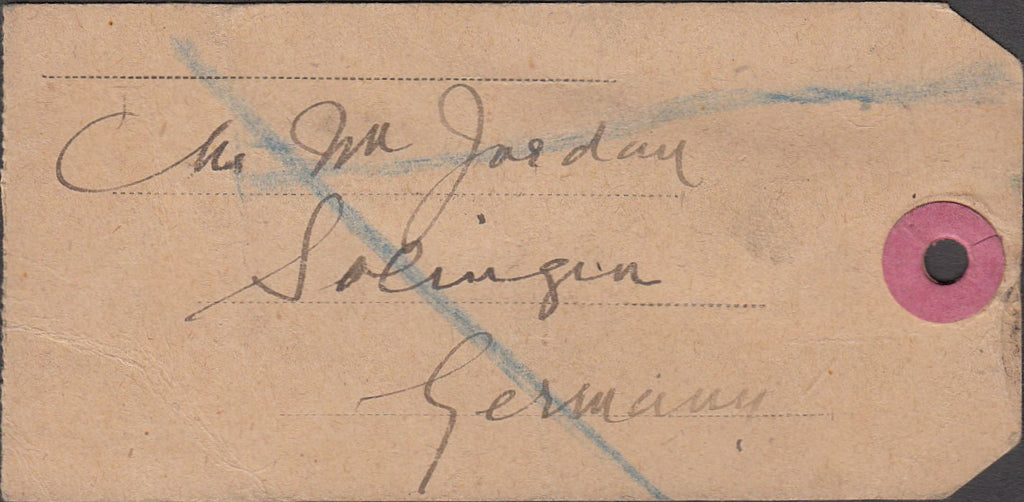 Jordan
Solingen
Germany